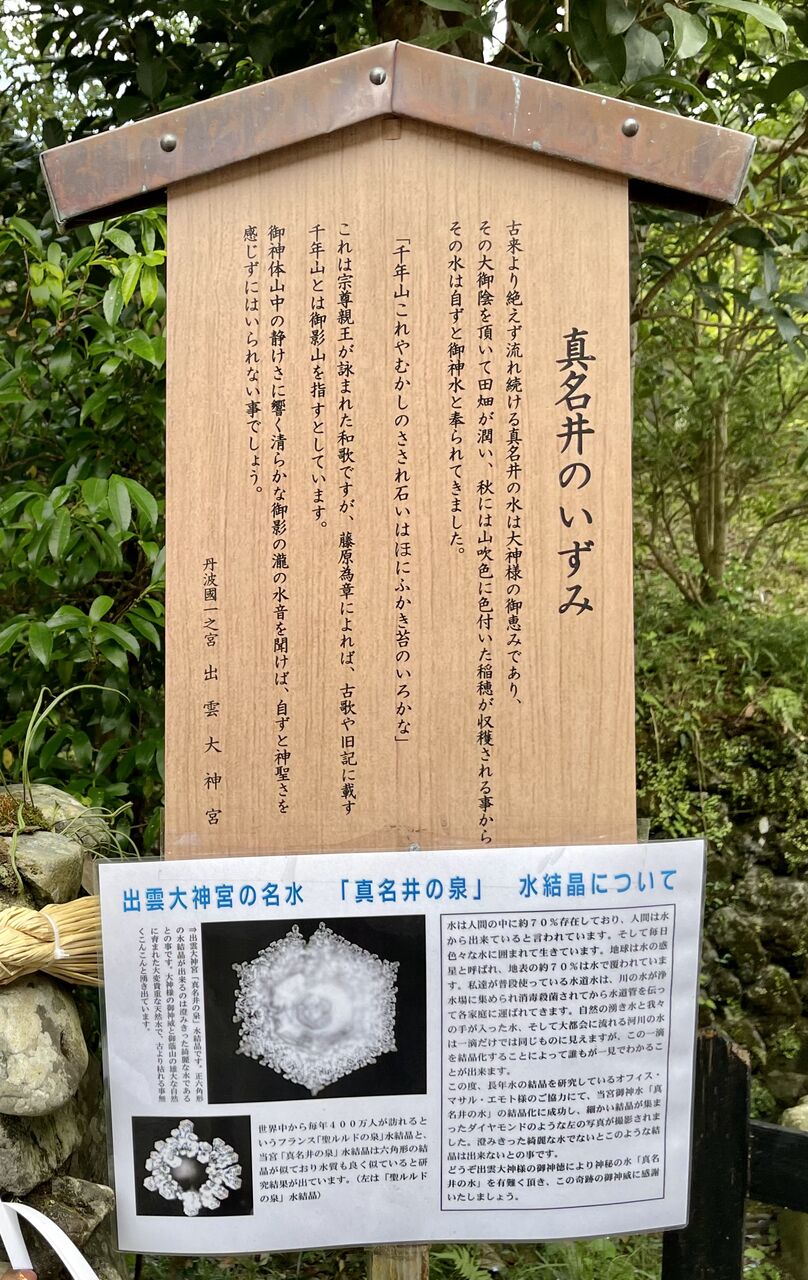 真名井のいずみ
古来より絶えず流れ続ける真名井の水は大神様の御恵みであり、
その大御陰を頂いて田畑が潤い、秋には山吹色に色付いた稲穂が収穫される事から
その水は自ずと御神水と奉られてきました。
「千年山これやむかしのさされ石いはほにふかき苔のいろかな」
これは宗尊親王が詠まれた和歌ですが、藤原為章によれば、古歌や旧記に載す
千年山とは御影山を指すとしています。
御神体山中の静けさに響く清らかな御影の瀧の水音を聞けば、自ずと神聖さを
感じずにはいられない事でしょう。
丹波國一之宮 出雲大神宮
出雲大神宮の名水 「真名井の泉」 水結晶について
水は人間の中に約70%存在しており、人間は水
から出来ていると言われています。そして毎日
色々な水に囲まれて生きています。地球は水の惑
星と呼ばれ、地表の約70%は水で覆われていま
す。私達が普段使っている水道水は、川の水が浄
水場に集められ消毒殺菌されてから水道管を伝っ
て各家庭に運ばれてきます。自然の湧き水と我々
の手が入った水、そして大都会に流れる河川の水
は一滴だけでは同じものに見えますが、この一滴
を結晶化することによって誰もが一見でわかるこ
とが出来ます。
この度、長年水の結晶を研究しているオフィス・
マサル・エモト様のご協力にて、当宮御神水「真
名井の水」の結晶化に成功し、細かい結晶が集ま
ったダイヤモンドのような左の写真が撮影されま
した。澄みきった綺麗な水でないとこのような結
晶は出来ないとの事です。
どうぞ出雲大神様の御神徳により神秘の水「真名
井の水」を有難く頂き、この奇跡の御神威に感謝
いたしましょう。
⇒出雲大神宮「真名井の泉」水結晶です。正六角形
の水結晶が出来るのは澄みきった綺麗な水である
との事です。大神様の御神威と御蔭山の雄大な自然
に育まれた大変貴重な天然水で、古より枯れる事無
くこんこんと湧き出ています。
世界中から毎年400万人が訪れると
いうフランス「聖ルルドの泉」水結晶と、
当宮「真名井の泉」水結晶は六角形の結
晶が似ており水質も良く似ていると研
究結果が出ています。(左は「聖ルルド
の泉」水結晶)